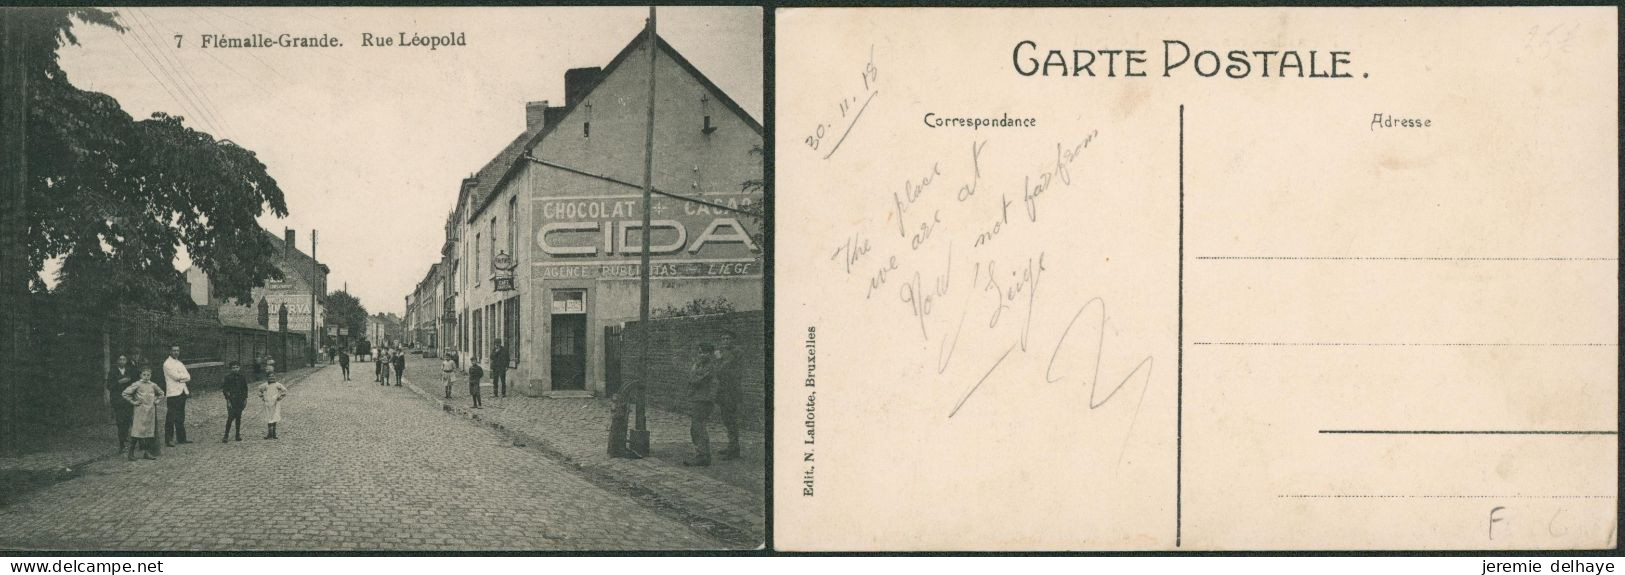 7 Flémalle-Grande. Rue Léopold
CHOCOLAT + CACAO
CIDA
AGENCE PUBLICITAS LIEGE
CARTE POSTALE.
Correspondance
Adresse
30.11.18
The place
we are at
Now, not far from
Liège
Edit. N. Laflotte, Bruxelles
F
jeremie delhaye